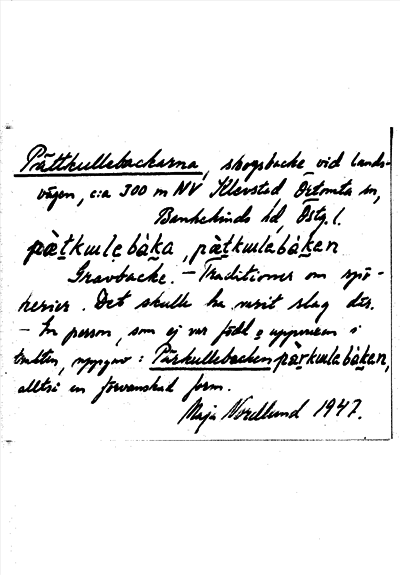 Pättkullebackarna, skogsbacke vid lands-
vägen, c:a 300 m NV Klevstad Örtomta sn,
Bankekinds hd, Östg. l.
pä̀tkɯlebàka, pä̀tkɯlebàken
Gravbacke. – Traditioner om spö-
kerier. Det skulle ha varit slag där.
– En person, som ej var född o uppvuxen i
trakten, uppgav: Pärkullebacken pä̀rkɯlebàken,
alltså en förvanskad form.
Maja Nordlund 1947.